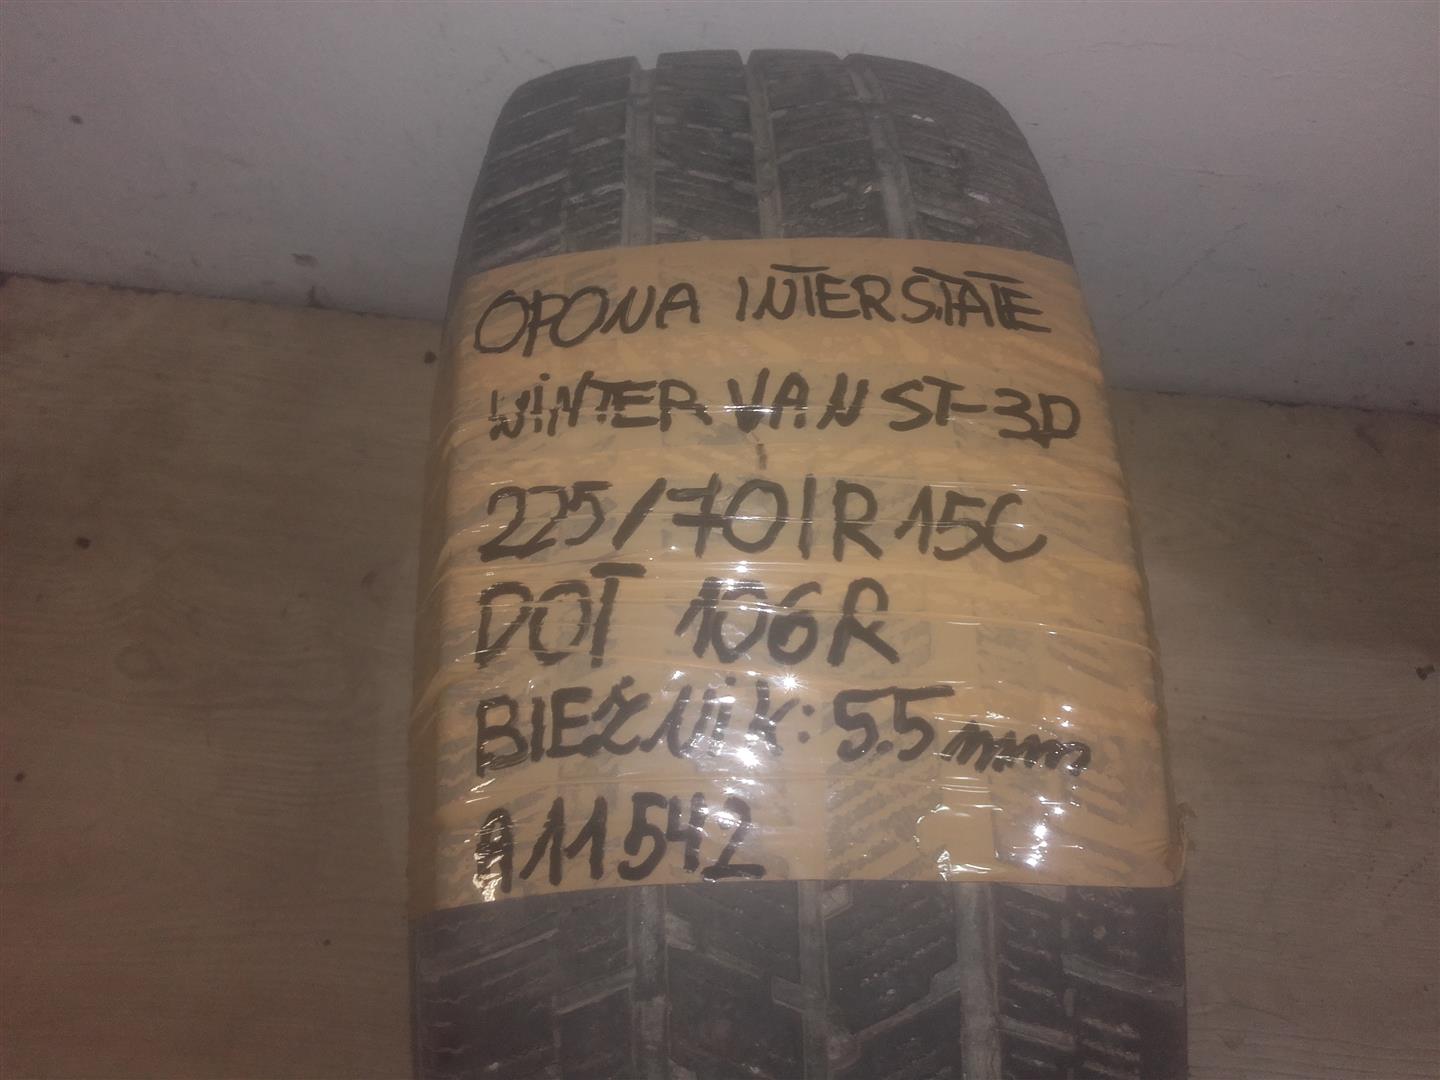 OPONA INTERSTATE
WINTER VAN ST-3D
225/70/R15C
DOT 106R
BIEŻNIK: 5.5 mm
A11542